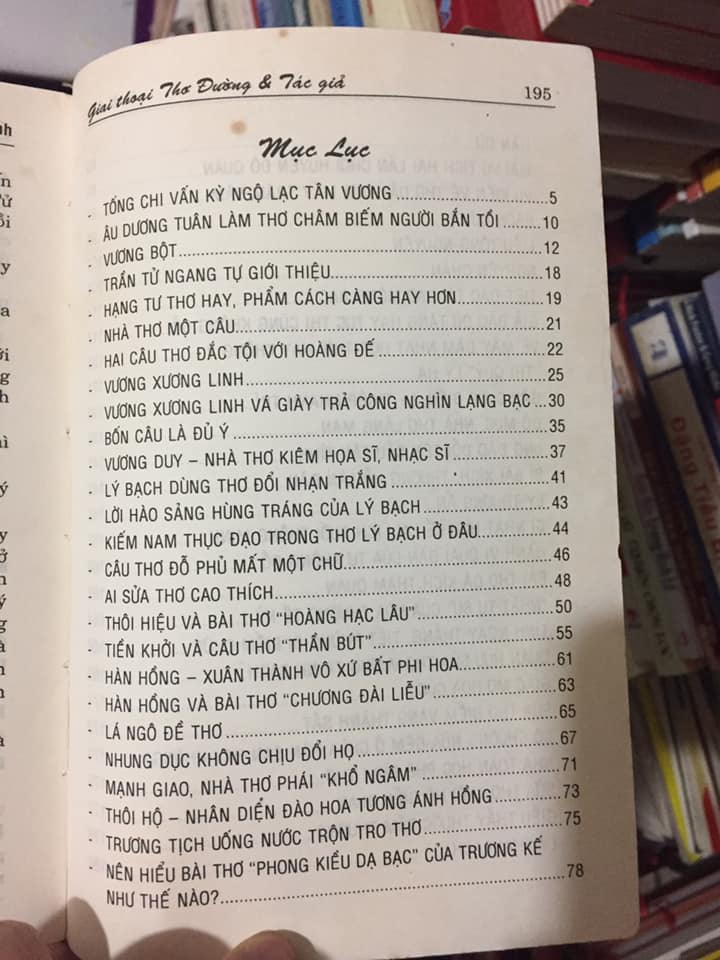 Giai thoại Thơ Đường & Tác giả 195
Mục Lục
- TỐNG CHI VẤN KỲ NGỘ LẠC TÂN VƯƠNG ..........5
- ÂU DƯƠNG TUÂN LÀM THƠ CHÂM BIẾM NGƯỜI BẮN TỒI ..........10
- VƯƠNG BỘT ..........12
- TRẦN TỬ NGANG TỰ GIỚI THIỆU ..........18
- HẠNG TƯ THƠ HAY, PHẨM CÁCH CÀNG HAY HƠN ..........19
- NHÀ THƠ MỘT CÂU ..........21
- HAI CÂU THƠ ĐẮC TỘI VỚI HOÀNG ĐẾ ..........22
- VƯƠNG XƯƠNG LINH ..........25
- VƯƠNG XƯƠNG LINH VÁ GIÀY TRẢ CÔNG NGHÌN LẠNG BẠC ...30
- BỐN CÂU LÀ ĐỦ Ý ..........35
- VƯƠNG DUY – NHÀ THƠ KIÊM HỌA SĨ, NHẠC SĨ ..........37
- LÝ BẠCH DÙNG THƠ ĐỔI NHẠN TRẮNG ..........41
- LỜI HÀO SẢNG HÙNG TRÁNG CỦA LÝ BẠCH ..........43
- KIẾM NAM THỤC ĐẠO TRONG THƠ LÝ BẠCH Ở ĐÂU ..........44
- CÂU THƠ ĐỖ PHỦ MẤT MỘT CHỮ ..........46
- AI SỬA THƠ CAO THÍCH ..........48
- THÔI HIỆU VÀ BÀI THƠ “HOÀNG HẠC LÂU” ..........50
- TIỀN KHỞI VÀ CÂU THƠ “THẦN BÚT” ..........55
- HÀN HỒNG – XUÂN THÀNH VÔ XỨ BẤT PHI HOA ..........61
- HÀN HỒNG VÀ BÀI THƠ “CHƯƠNG ĐÀI LIỄU” ..........63
- LÁ NGÔ ĐỀ THƠ ..........65
- NHUNG DỤC KHÔNG CHỊU ĐỔI HỌ ..........67
- MẠNH GIAO, NHÀ THƠ PHÁI “KHỔ NGÂM” ..........71
- THÔI HỘ – NHÂN DIỆN ĐÀO HOA TƯƠNG ÁNH HỒNG ..........73
- TRƯƠNG TỊCH UỐNG NƯỚC TRỘN TRO THƠ ..........75
- NÊN HIỂU BÀI THƠ “PHONG KIỀU DẠ BẠC” CỦA TRƯƠNG KẾ
NHƯ THẾ NÀO? ..........78